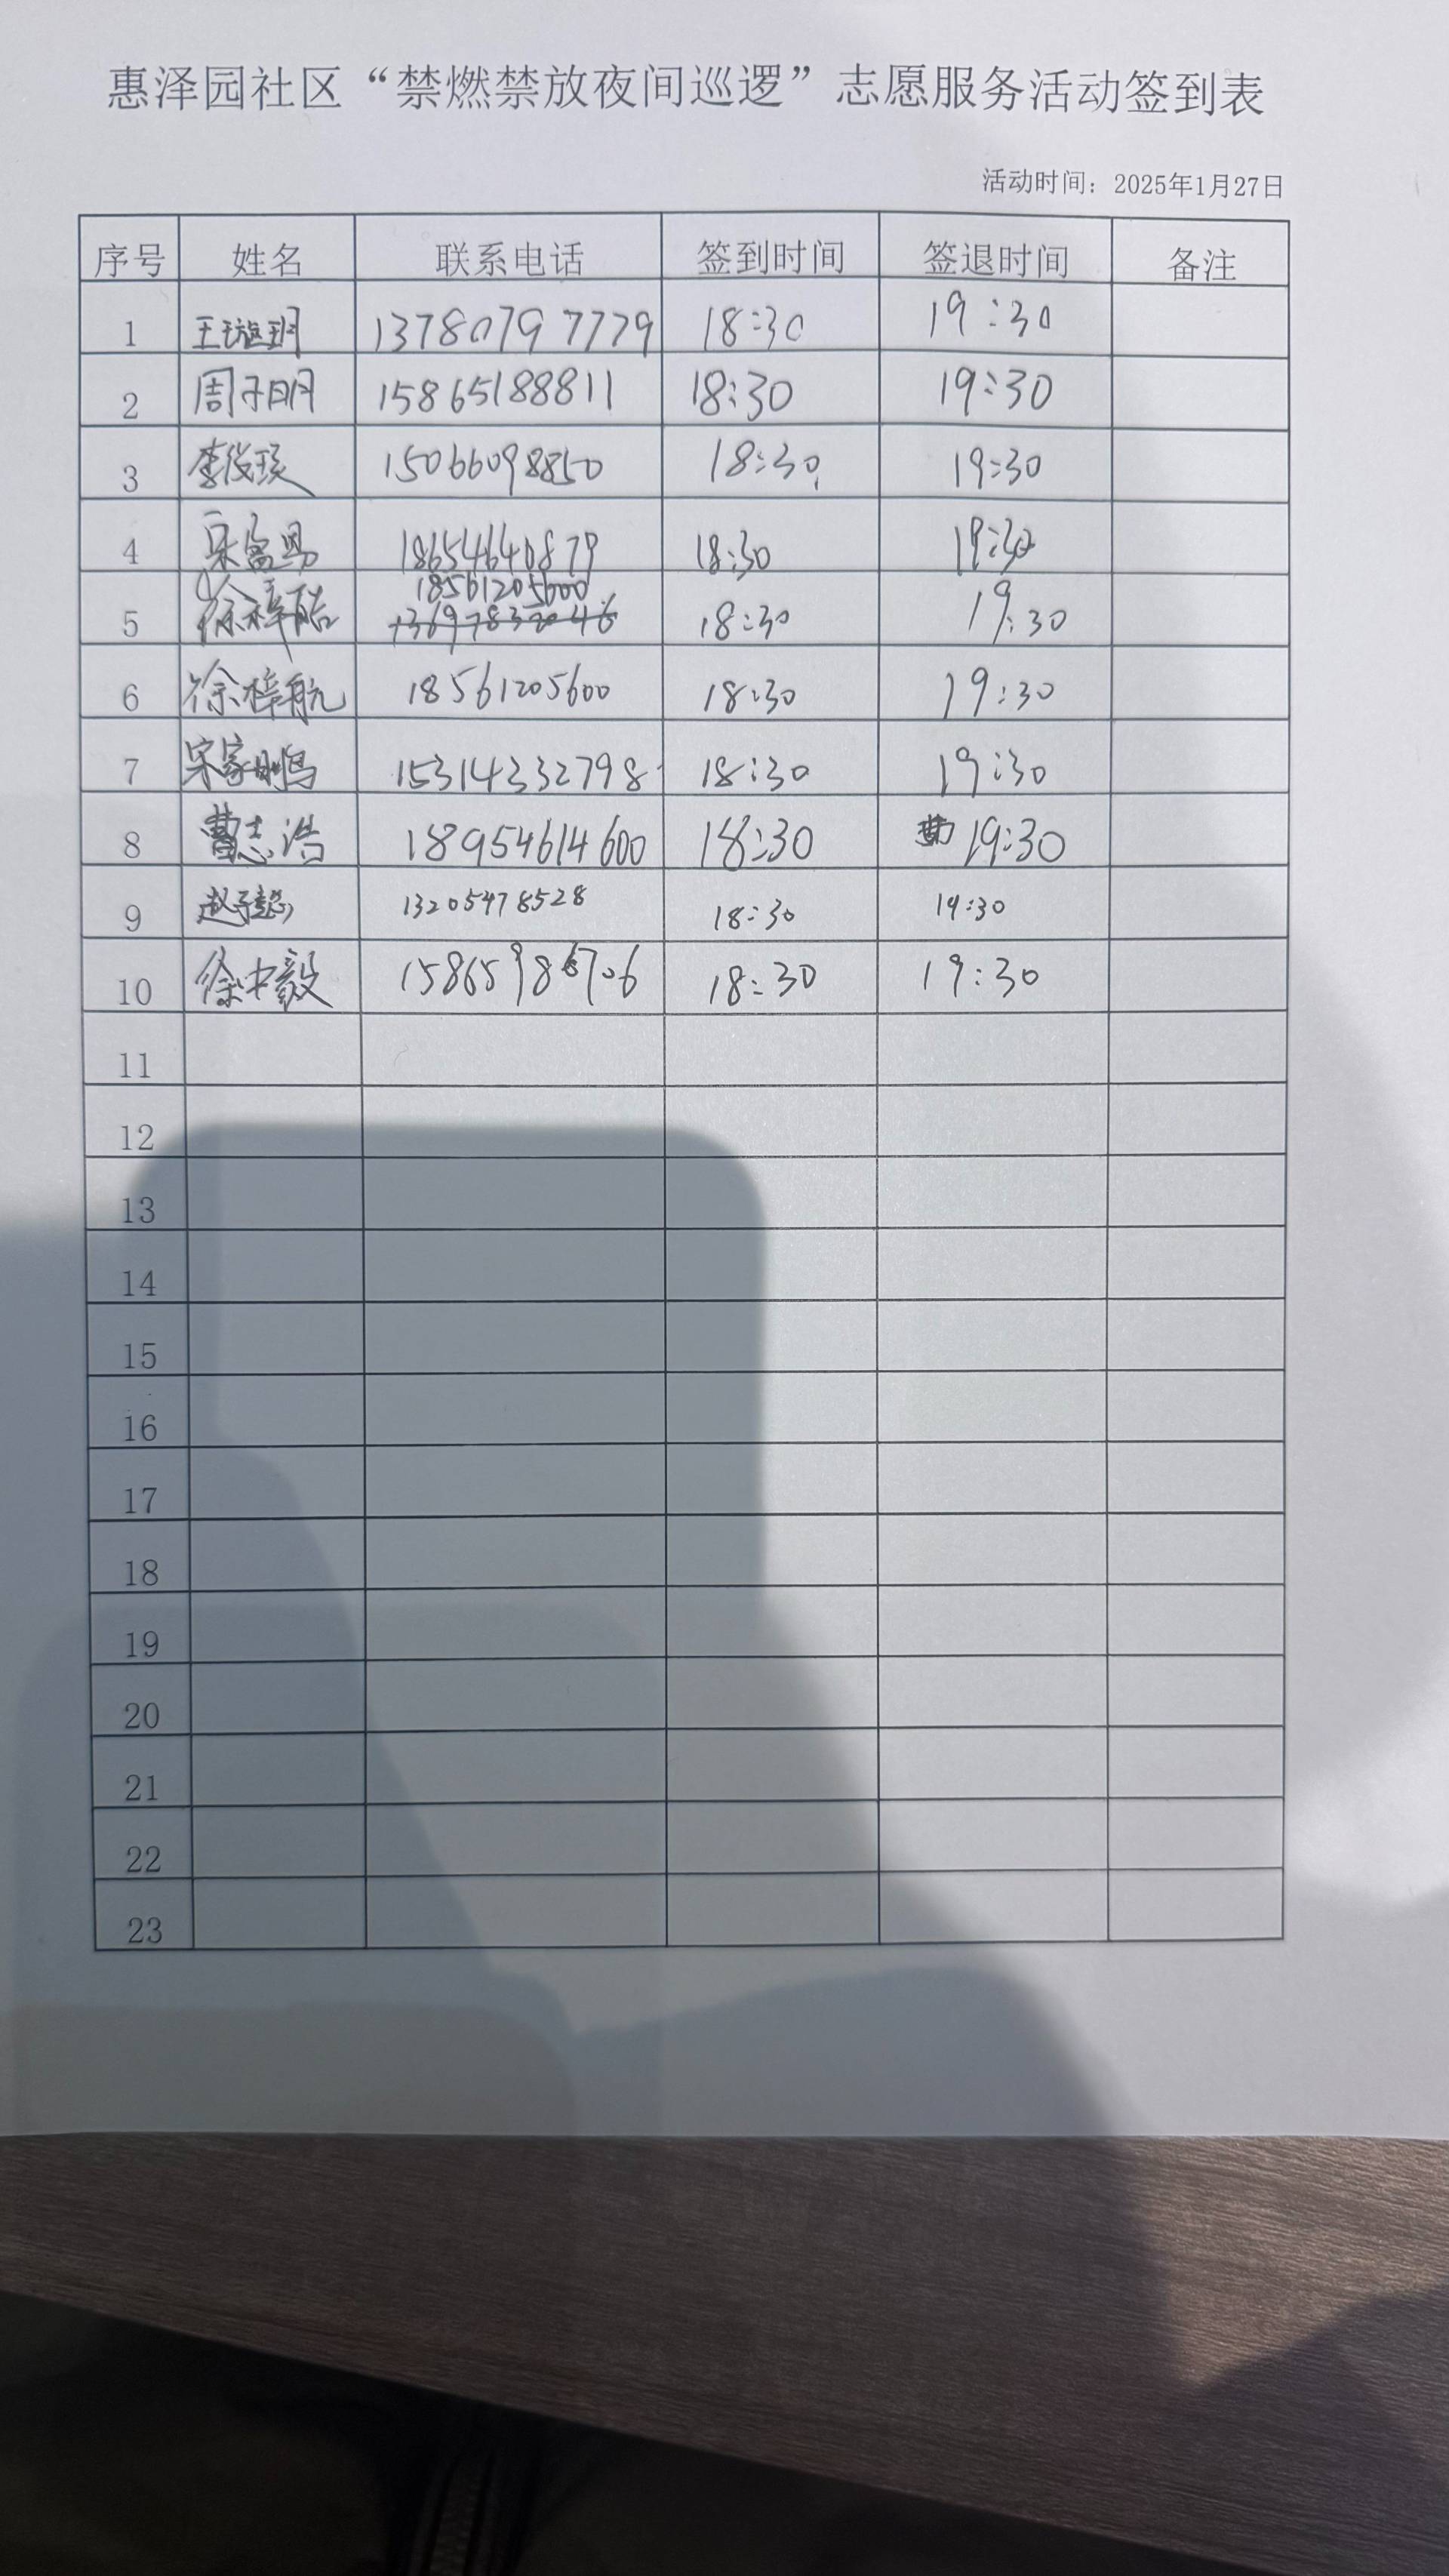 惠泽园社区“禁燃禁放夜间巡逻”志愿服务活动签到表
活动时间：2025年1月27日
序号 姓名 联系电话 签到时间 签退时间 备注
1 王璇玥 13780797779 18:30 19:30
2 周子明 15865188811 18:30 19:30
3 李俊瑛 15066098850 18:30 19:30
4 18654640879 18:30 19:30
5 徐梓皓 18561205600 18:30 19:30
6 徐梓航 18561205600 18:30 19:30
7 宋家鹏 15314332798 18:30 19:30
8 曹志浩 18954614600 18:30 19:30
9 赵子懿 13205478528 18:30 19:30
10 徐中毅 15865986706 18:30 19:30
11
12
13
14
15
16
17
18
19
20
21
22
23